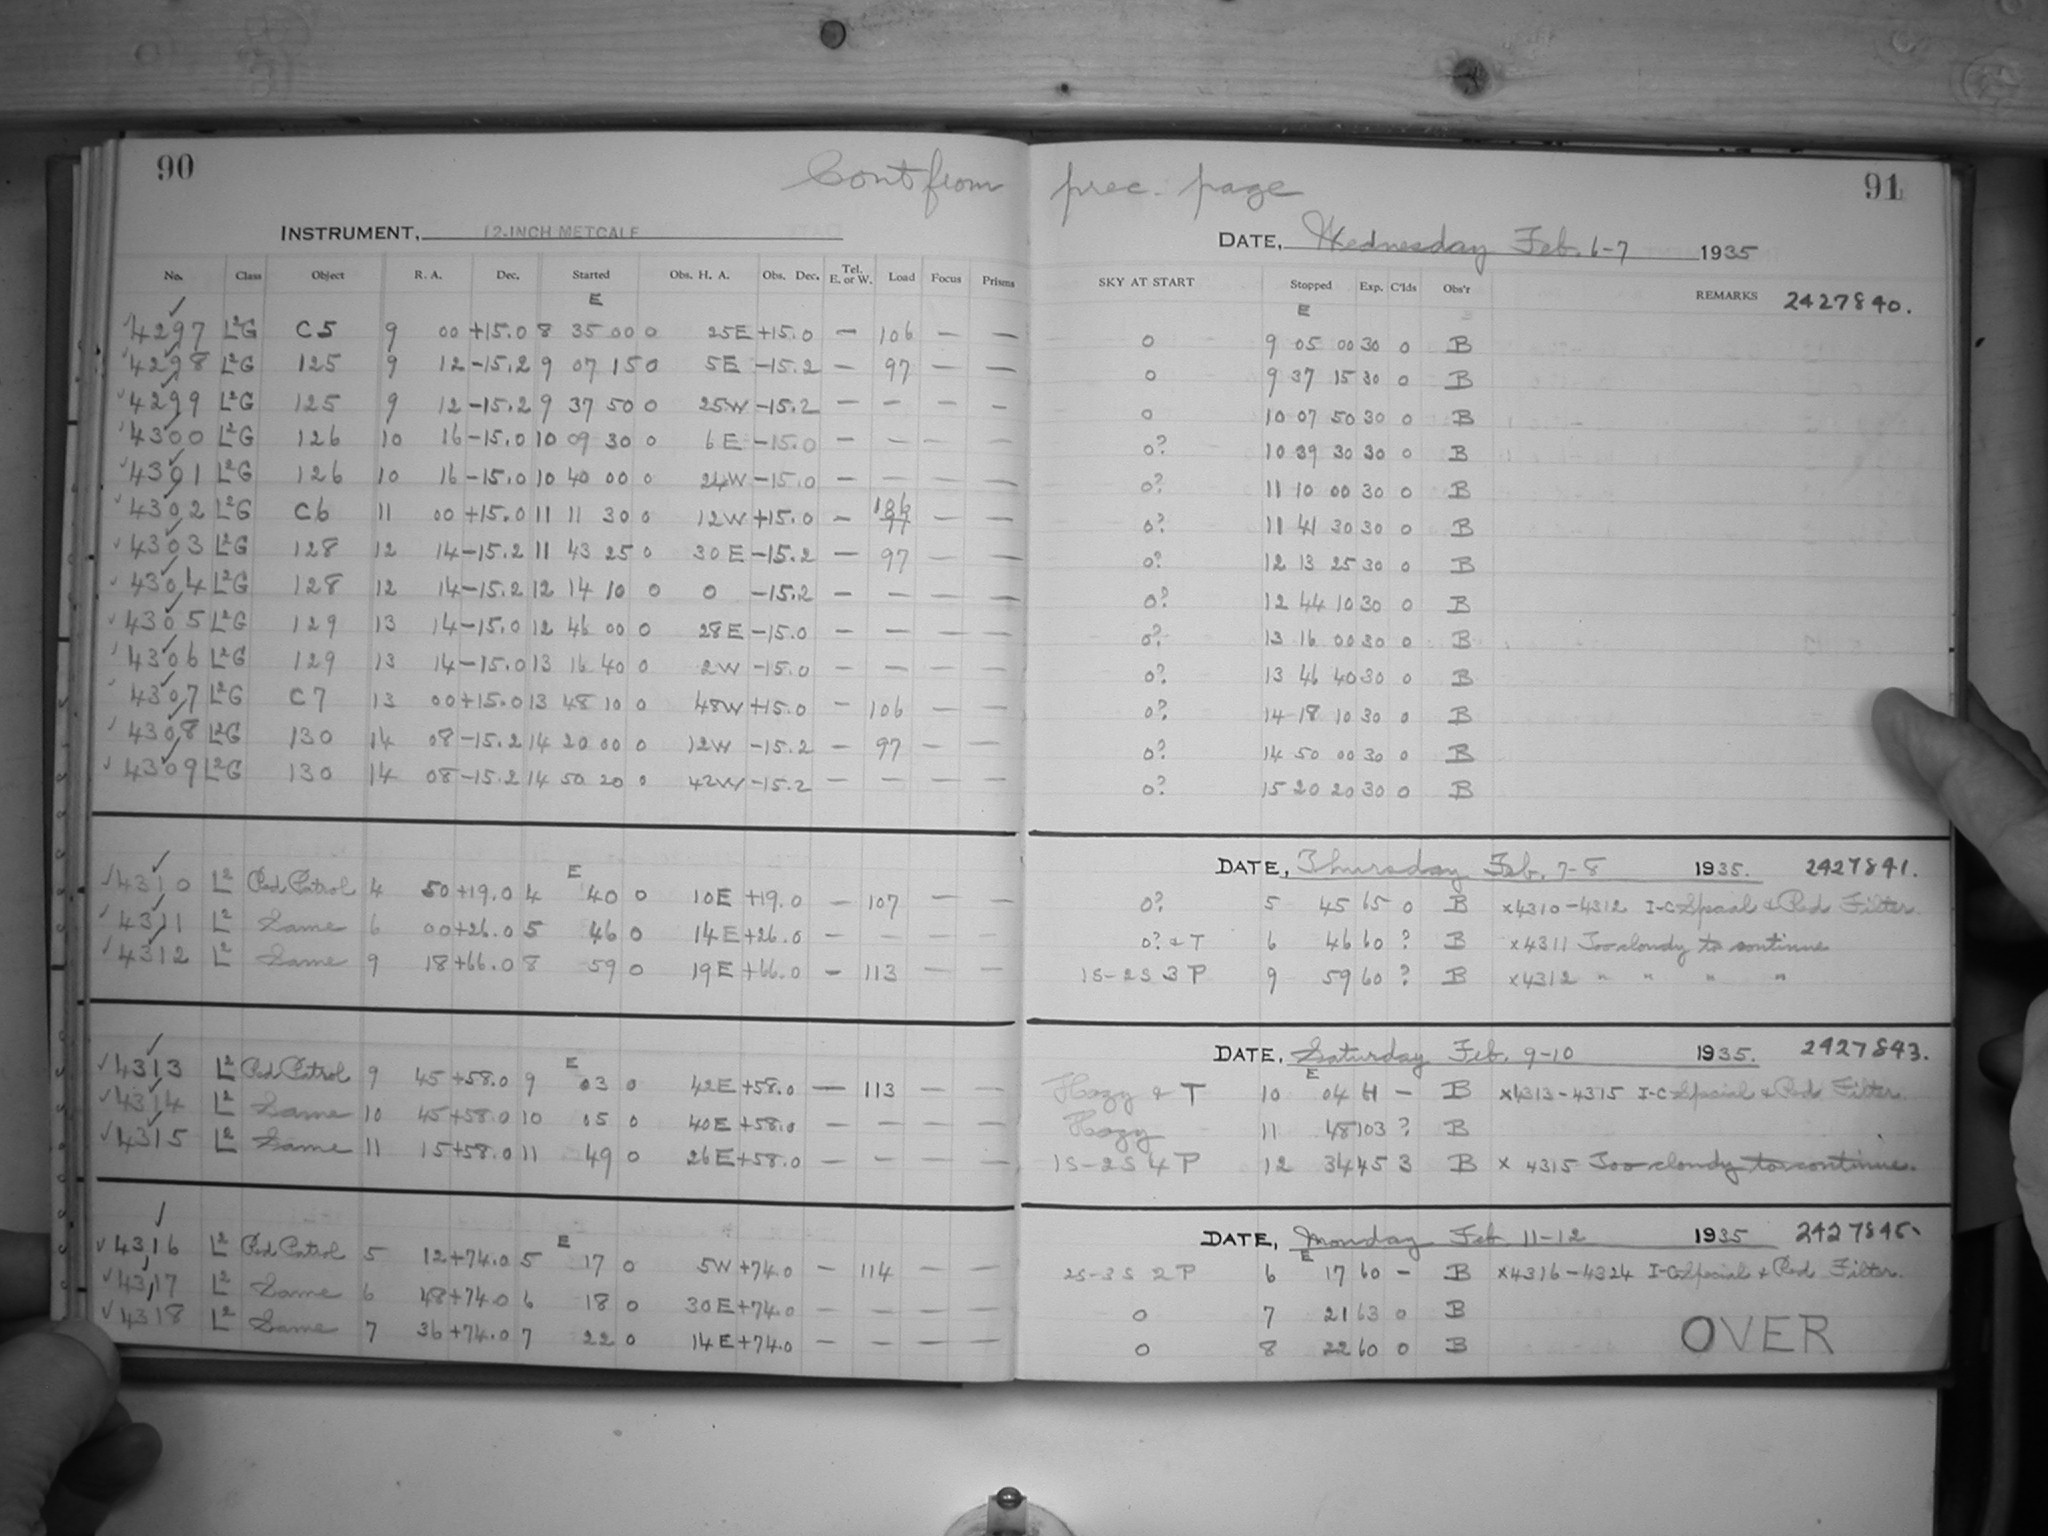 90
Cont from prec. page
91
INSTRUMENT, 12-INCH METCALF
DATE, Wednesday Feb. 6-7 1935
No. Class Object R. A. Dec. Started Obs. H. A. Obs. Dec. Tel. E. or W. Load Focus Prisms SKY AT START Stopped Exp. C'lds Obs'r REMARKS 2427840.
E E
4297 L²G C5 9 00 +15.0 8 35 00 0 25E +15.0 — 106 — — 0 9 05 00 30 0 B
4298 L²G 125 9 12 -15.2 9 07 15 0 5E -15.2 — 97 — — 0 9 37 15 30 0 B
4299 L²G 125 9 12 -15.2 9 37 50 0 25W -15.2 — — — — 0 10 07 50 30 0 B
4300 L²G 126 10 16 -15.0 10 09 30 0 6E -15.0 — — — — 0? 10 39 30 30 0 B
4301 L²G 126 10 16 -15.0 10 40 00 0 24W -15.0 — — — — 0? 11 10 00 30 0 B
4302 L²G C6 11 00 +15.0 11 11 30 0 12W +15.0 — 106 — — 0? 11 41 30 30 0 B
4303 L²G 128 12 14 -15.2 11 43 25 0 30E -15.2 — 97 — — 0? 12 13 25 30 0 B
4304 L²G 128 12 14 -15.2 12 14 10 0 0 -15.2 — — — — 0? 12 44 10 30 0 B
4305 L²G 129 13 14 -15.0 12 46 00 0 28E -15.0 — — — — 0? 13 16 00 30 0 B
4306 L²G 129 13 14 -15.0 13 16 40 0 2W -15.0 — — — — 0? 13 46 40 30 0 B
4307 L²G C7 13 00 +15.0 13 48 10 0 48W +15.0 — 106 — — 0? 14 18 10 30 0 B
4308 L²G 130 14 08 -15.2 14 20 00 0 12W -15.2 — 97 — — 0? 14 50 00 30 0 B
4309 L²G 130 14 08 -15.2 14 50 20 0 42W -15.2 — — — — 0? 15 20 20 30 0 B
DATE, Thursday Feb. 7-8 1935. 2427841.
E
4310 L² Red Patrol 4 50 +19.0 4 40 0 10E +19.0 — 107 — — 0? 5 45 65 0 B x4310-4312 I-C Special & Red Filter.
4311 L² Same 6 00 +26.0 5 46 0 14E +26.0 — — — — 0? & T 6 46 60 ? B x4311 Too cloudy to continue
4312 L² Same 9 18 +66.0 8 59 0 19E +66.0 — 113 — — 1S-2S 3P 9 59 60 ? B x4312 " " " "
DATE, Saturday Feb. 9-10 1935. 2427843.
E E
4313 L² Red Patrol 9 45 +58.0 9 03 0 42E +58.0 — 113 — — Hazy & T 10 04 — B x4313-4315 I-C Special & Red Filter.
4314 L² Same 10 45 +58.0 10 05 0 40E +58.0 — — — — Hazy 11 48 103 ? B
4315 L² Same 11 15 +58.0 11 49 0 26E +58.0 — — — — 1S-2S 4P 12 34 45 3 B x 4315 Too cloudy to continue.
DATE, Monday Feb. 11-12 1935 2427845.
E E
4316 L² Red Patrol 5 12 +74.0 5 17 0 5W +74.0 — 114 — — 2S-3S 2P 6 17 60 — B x4316-4324 I-C Special & Red Filter.
4317 L² Same 6 48 +74.0 6 18 0 30E +74.0 — — — — 0 7 21 63 0 B
4318 L² Same 7 36 +74.0 7 22 0 14E +74.0 — — — — 0 8 22 60 0 B
OVER